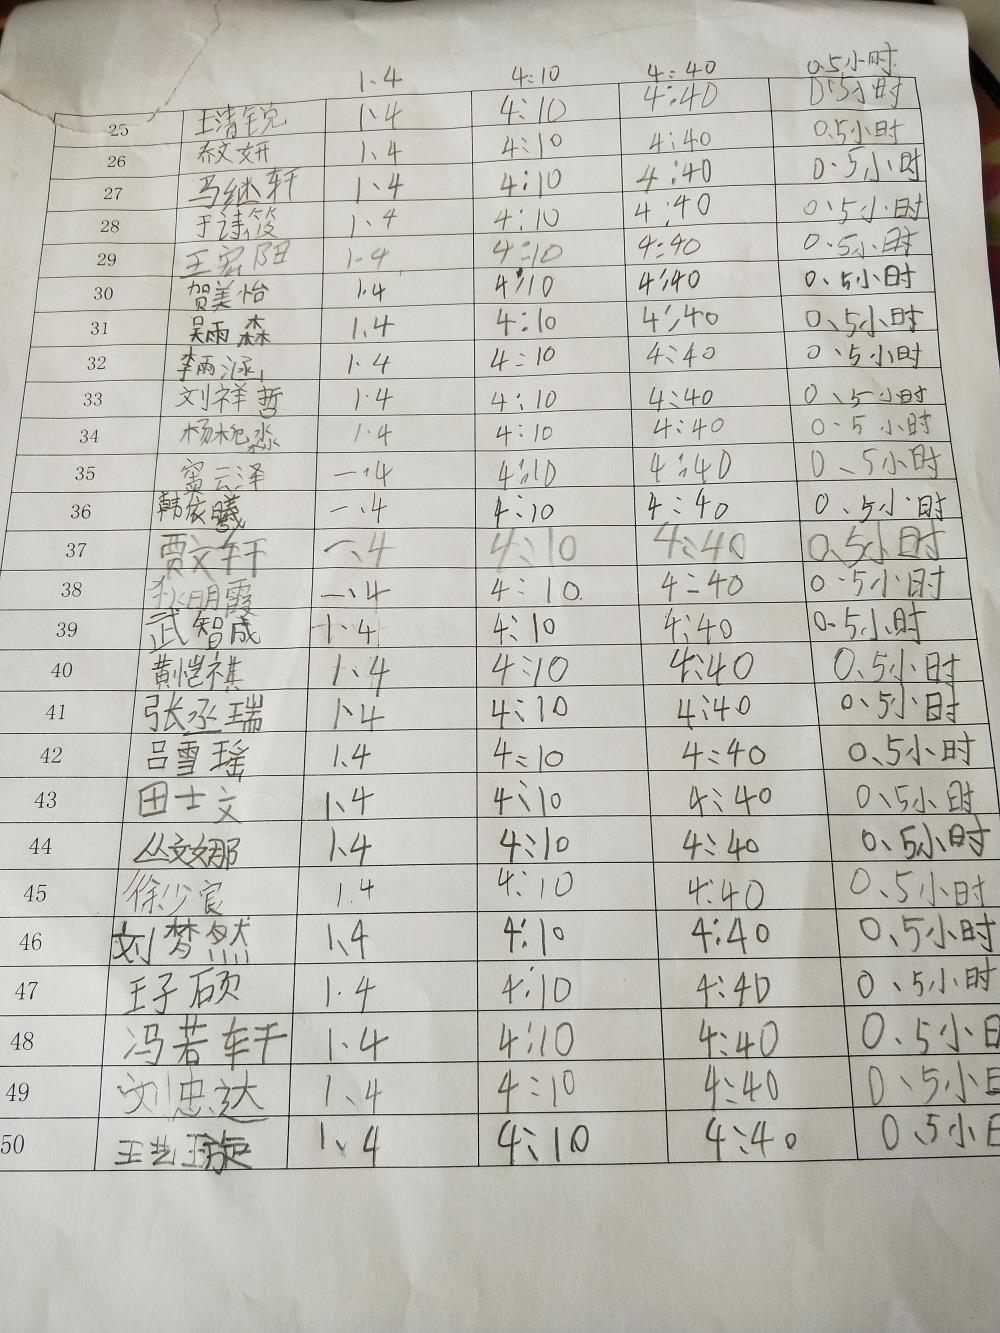 1.4 4:10 4:40 0.5小时
25 王清锐 1.4 4:10 4:40 0.5小时
26 乔文妍 1.4 4:10 4:40 0.5小时
27 马继轩 1.4 4:10 4:40 0.5小时
28 于诗筱 1.4 4:10 4:40 0.5小时
29 王宏阳 1.4 4:10 4:40 0.5小时
30 贺美怡 1.4 4:10 4:40 0.5小时
31 吴雨森 1.4 4:10 4:40 0.5小时
32 李雨涵 1.4 4:10 4:40 0.5小时
33 刘祥哲 1.4 4:10 4:40 0.5小时
34 杨桅淼 1.4 4:10 4:40 0.5小时
35 窦云泽 一.4 4:10 4:40 0、5小时
36 韩依曦 一.4 4:10 4:40 0、5小时
37 贾文轩 一、4 4:10 4:40 0、5小时
38 明霞 一、4 4:10 4:40 0.5小时
39 武智成 1、4 4:10 4:40 0.5小时
40 黄恺祺 1、4 4:10 4:40 0.5小时
41 张丞瑞 1.4 4:10 4:40 0.5小时
42 吕雪瑶 1.4 4:10 4:40 0、5小时
43 田士文 1、4 4:10 4:40 0、5小时
44 丛文娜 1、4 4:10 4:40 0、5小时
45 徐少宸 1.4 4:10 4:40 0、5小时
46 刘梦然 1、4 4:10 4:40 0、5小时
47 王子硕 1.4 4:10 4:40 0、5小时
48 冯若轩 1.4 4:10 4:40 0、5小
49 刘忠达 1、4 4:10 4:40 0、5小
50 王艺璇 1、4 4:10 4:40 0、5小